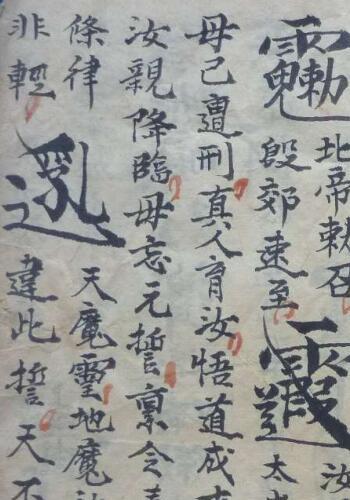 北帝敕召
殷郊速至
汝
太
母已遭刑真人育汝悟道成
汝親降臨毋忘元誓稟令
條律
非輕
天魔靈地魔
違此誓天不